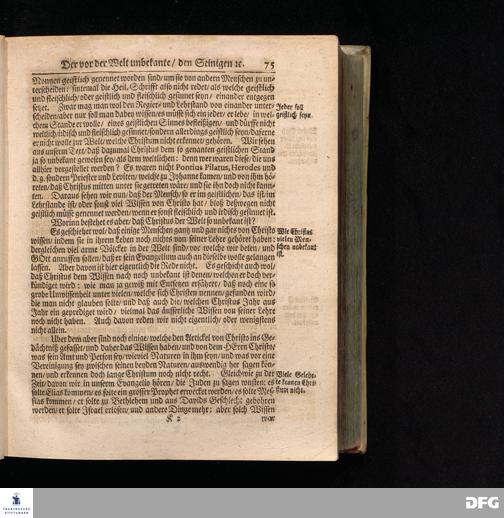 Der vor der Welt unbekante/ den Seinigen ꝛc. 75
Nonnen geistlich genennet worden sind/ um sie von andern Menschen zu un-
terscheiden: sintemal die Heil. Schrifft also nicht redet/ als welche geistlich
und fleischlich/ oder geistlich und fleischlich gesinnet seyn/ einander entgegen
setzet. Zwar mag man wol den Regier- und Lehrstand von einander unter-
scheiden/ aber nur soll man dabey wissen/ es müsse sich ein jeder/ er lebe/ in wel-
chem Stande er wolle/ eines geistlichen Sinnes befleißigen/ und dürffe nicht
weltlich/ irdisch und fleischlich gesinnet/ sondern allerdings geistlich seyn/ daferne
er nicht wolle zur Welt/ welche Christum nicht erkennet/ gehören. Wir sehen
aus unserm Text/ daß dazumal Christus dem so genanten geistlichen Stand
ja so unbekant gewesen sey/ als dem weltlichen: denn wer waren diese/ die uns
allhier vorgestellet werden? Es waren nicht Pontius Pilatus, Herodes und
d. g. sondern Priester und Leviten/ welche zu Johanne kamen/ und von ihm hö-
reten/ daß Christus mitten unter sie getreten wäre/ und sie ihn doch nicht kann-
ten. Daraus sehen wir nun/ daß der Mensch/ so er im geistlichen/ das ist/ im
Lehrstande ist/ oder sonst viel Wissen von Christo hat/ bloß deßwegen nicht
geistlich müsse genennet werden/ wenn er sonst fleischlich und irdisch gesinnet ist.
Jeder soll
geistlich seyn.
Worinn bestehet es aber/ daß Christus der Welt so unbekant ist?
Es geschiehet wol/ daß einige Menschen gantz und gar nichts von Christo
wissen/ indem sie in ihrem Leben noch nichts von seiner Lehre gehöret haben:
dergleichen viel arme Völcker in der Welt sind/ vor welche wir beten/ und
GOtt anruffen sollen/ daß er sein Evangelium auch an dieselbe wolle gelangen
lassen. Aber davon ist hier eigentlich die Rede nicht. Es geschicht auch wol/
daß Christus dem Wissen nach noch unbekant ist denen/ welchen er doch ver-
kündiget wird: wie man ja gewiß mit Entsetzen erfähret/ daß noch eine so
grobe Unwissenheit unter vielen/ welche sich Christen nennen/ gefunden wird/
die man nicht glauben solte/ und daß auch die/ welchen Christus Jahr aus
Jahr ein geprediget wird/ vielmal das äusserliche Wissen von seiner Lehre
noch nicht haben. Auch davon reden wir nicht eigentlich/ oder wenigstens
nicht allein.
Wie Christus
vielen Men-
schen unbekant
ist.
Uber dem aber sind noch einige/ welche den Articul von Christo ins Ge-
dächtniß gefasset/ und daher das Wissen haben/ und von dem HErrn Christo/
was sein Amt und Person sey/ wieviel Naturen in ihm seyn/ und was vor eine
Vereinigung sey zwischen seinen beyden Naturen/ auswendig her sagen kön-
nen/ und erkennen doch lange Christum noch nicht recht. Gleichwie zu der
Zeit/ davon wir in unserm Evangelio hören/ die Juden zu sagen wusten: es
solte Elias kommen/ es solte ein grosser Prophet erwecket werden/ es solte Mes-
sias kommen/ er solte zu Bethlehem und aus Davids Geschlecht gebohren
werden/ er solte Israel erlösen/ und andere Dinge mehr; aber solch Wissen
Viele Gelehr-
te kennen Chri-
stum nicht.
K 2 war
FRANCKESCHE
STIFTUNGEN
DFG